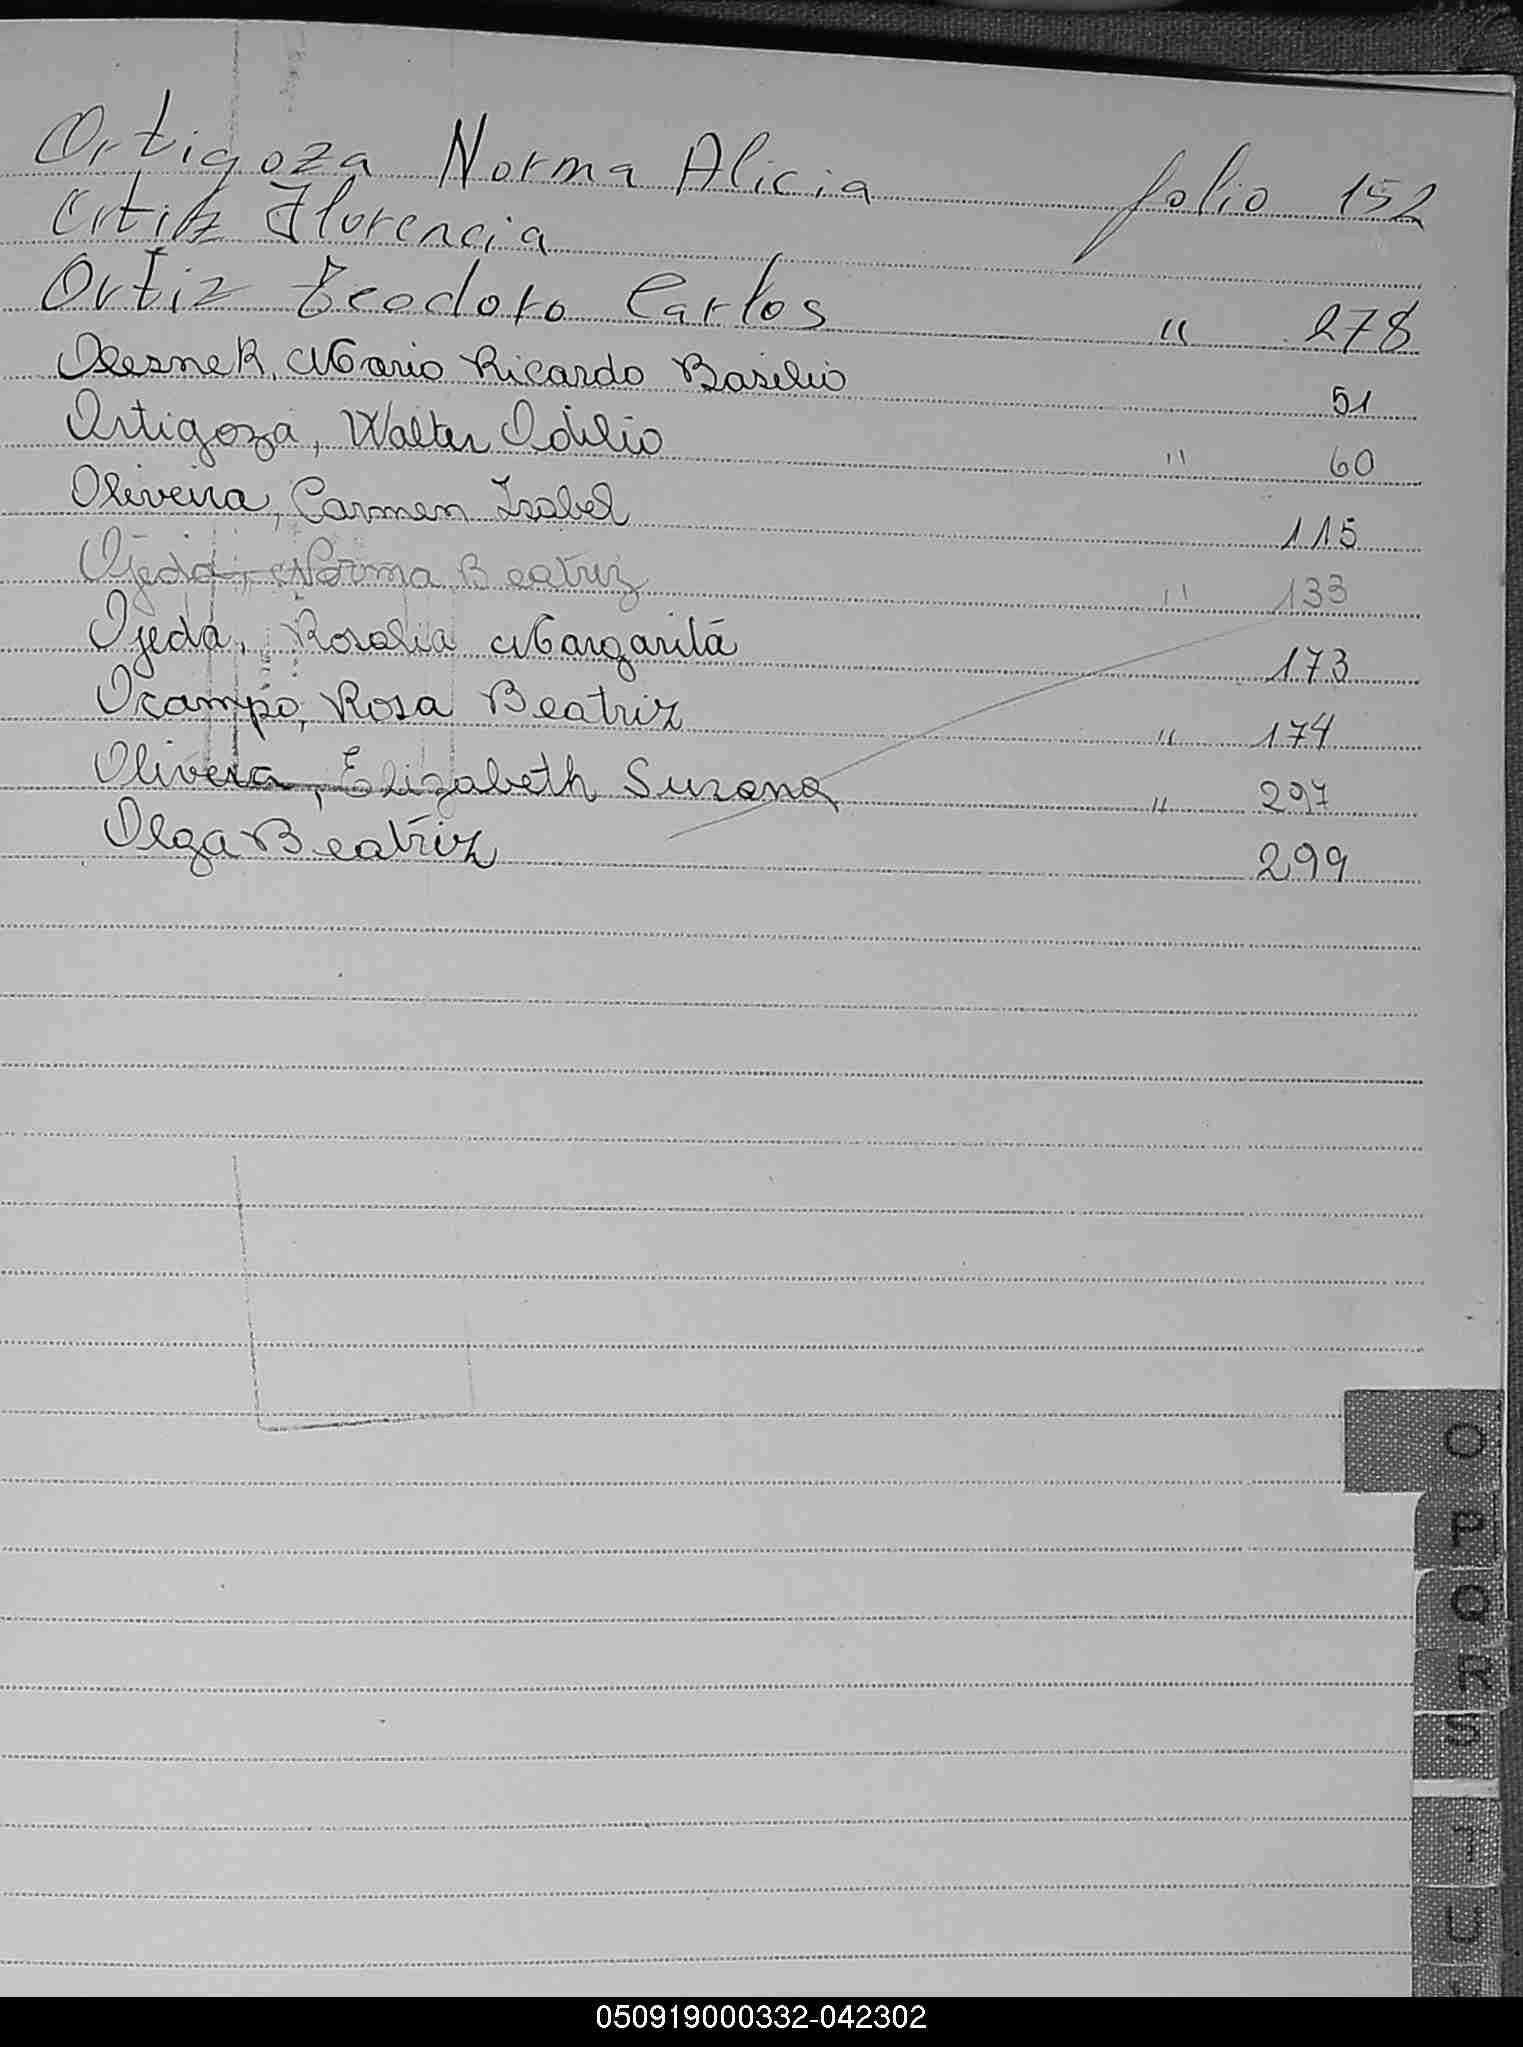 Ortigoza Norma Alicia folio 152
Ortiz Florencia
Ortiz Teodoro Carlos " 278
Olesnek, Mario Ricardo Basilio 51
Ortigoza, Walter Odilio " 60
Oliveira, Carmen Isabel 115
Ojeda, Norma Beatriz " 133
Ojeda, Rosalia Margarita 173
Ocampo, Rosa Beatriz " 174
Olivera, Elizabeth Susana " 297
Olga Beatriz 299
O
P
Q
R
S
T
U
050919000332-042302